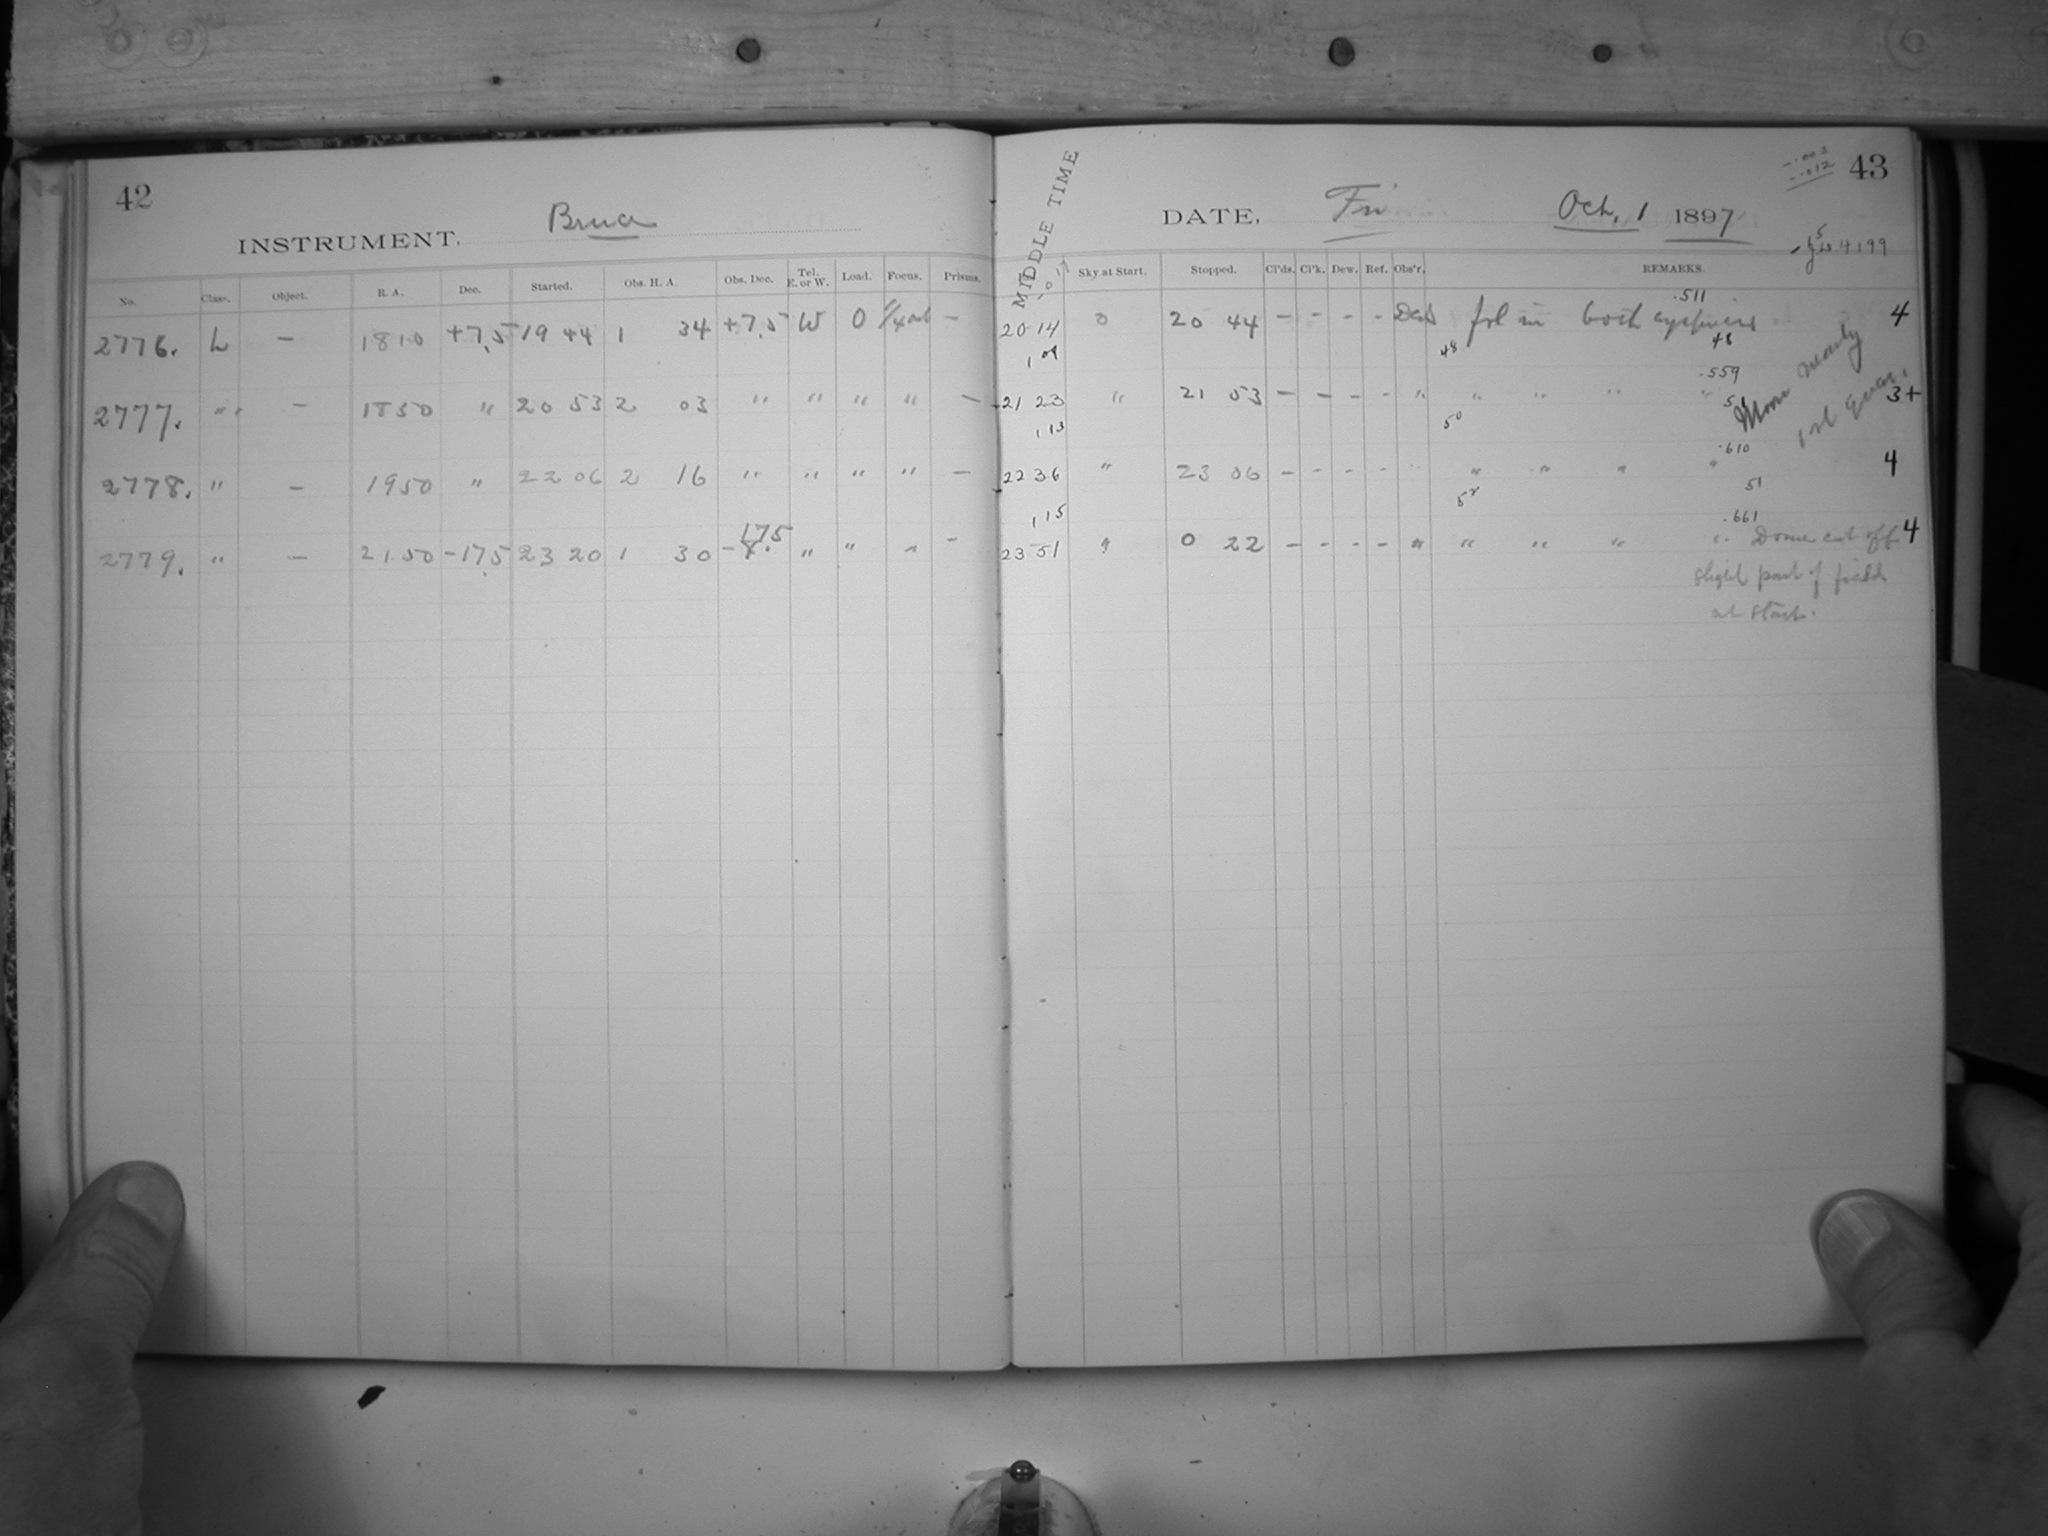 42
INSTRUMENT. Bruce
No. Class. Object. R. A. Dec. Started. Obs. H. A. Obs. Dec. Tel. E. or W. Load. Focus. Prisms.
2776. L — 1810 +7.5 19 44 1 34 +7.5 W 0 —
2777. " — 1850 " 20 53 2 03 " " " " —
2778. " — 1950 " 22 06 2 16 " " " " —
175
2779. " — 21.50 -17.5 23 20 1 30 " " " —
43
-.003
-.012
MIDDLE TIME
DATE, Fri Oct. 1 1897
4199
Sky at Start. Stopped. Cl'ds. Cl'k. Dew. Ref. Obs'r. REMARKS.
.511
20 14 0 20 44 - - - - fol in both eyepieces 4
1 09 48 48
Moon nearly
1st Quar.
.559
21 23 " 21 53 - - - - " " " " " 3+
1 13 50 51
.610
22 36 " 23 06 - - - - " " " " 4
1 15 52 51
.661
23 51 " 0 22 - - - - " " " " " Dome cut off 4
slight part of field
at start.